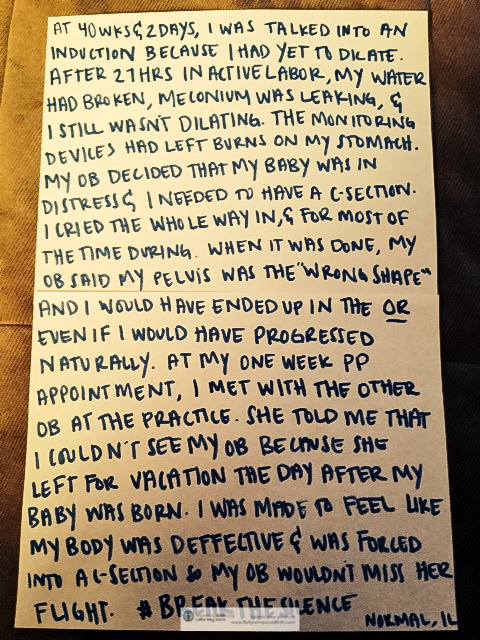 AT 40WKS & 2DAYS, I WAS TALKED INTO AN
INDUCTION BECAUSE I HAD YET TO DILATE.
AFTER 27HRS IN ACTIVE LABOR, MY WATER
HAD BROKEN, MECONIUM WAS LEAKING, &
I STILL WASN'T DILATING. THE MONITORING
DEVICES HAD LEFT BURNS ON MY STOMACH.
MY OB DECIDED THAT MY BABY WAS IN
DISTRESS & I NEEDED TO HAVE A C-SECTION.
I CRIED THE WHOLE WAY IN, & FOR MOST OF
THE TIME DURING. WHEN IT WAS DONE, MY
OB SAID MY PELVIS WAS THE "WRONG SHAPE"
AND I WOULD HAVE ENDED UP IN THE OR
EVEN IF I WOULD HAVE PROGRESSED
NATURALLY. AT MY ONE WEEK PP
APPOINTMENT, I MET WITH THE OTHER
OB AT THE PRACTICE. SHE TOLD ME THAT
I COULDN'T SEE MY OB BECAUSE SHE
LEFT FOR VACATION THE DAY AFTER MY
BABY WAS BORN. I WAS MADE TO FEEL LIKE
MY BODY WAS DEFFECTIVE & WAS FORCED
INTO A C-SECTION SO MY OB WOULDN'T MISS HER
FLIGHT. #BREAKTHESILENCE
NORMAL, IL